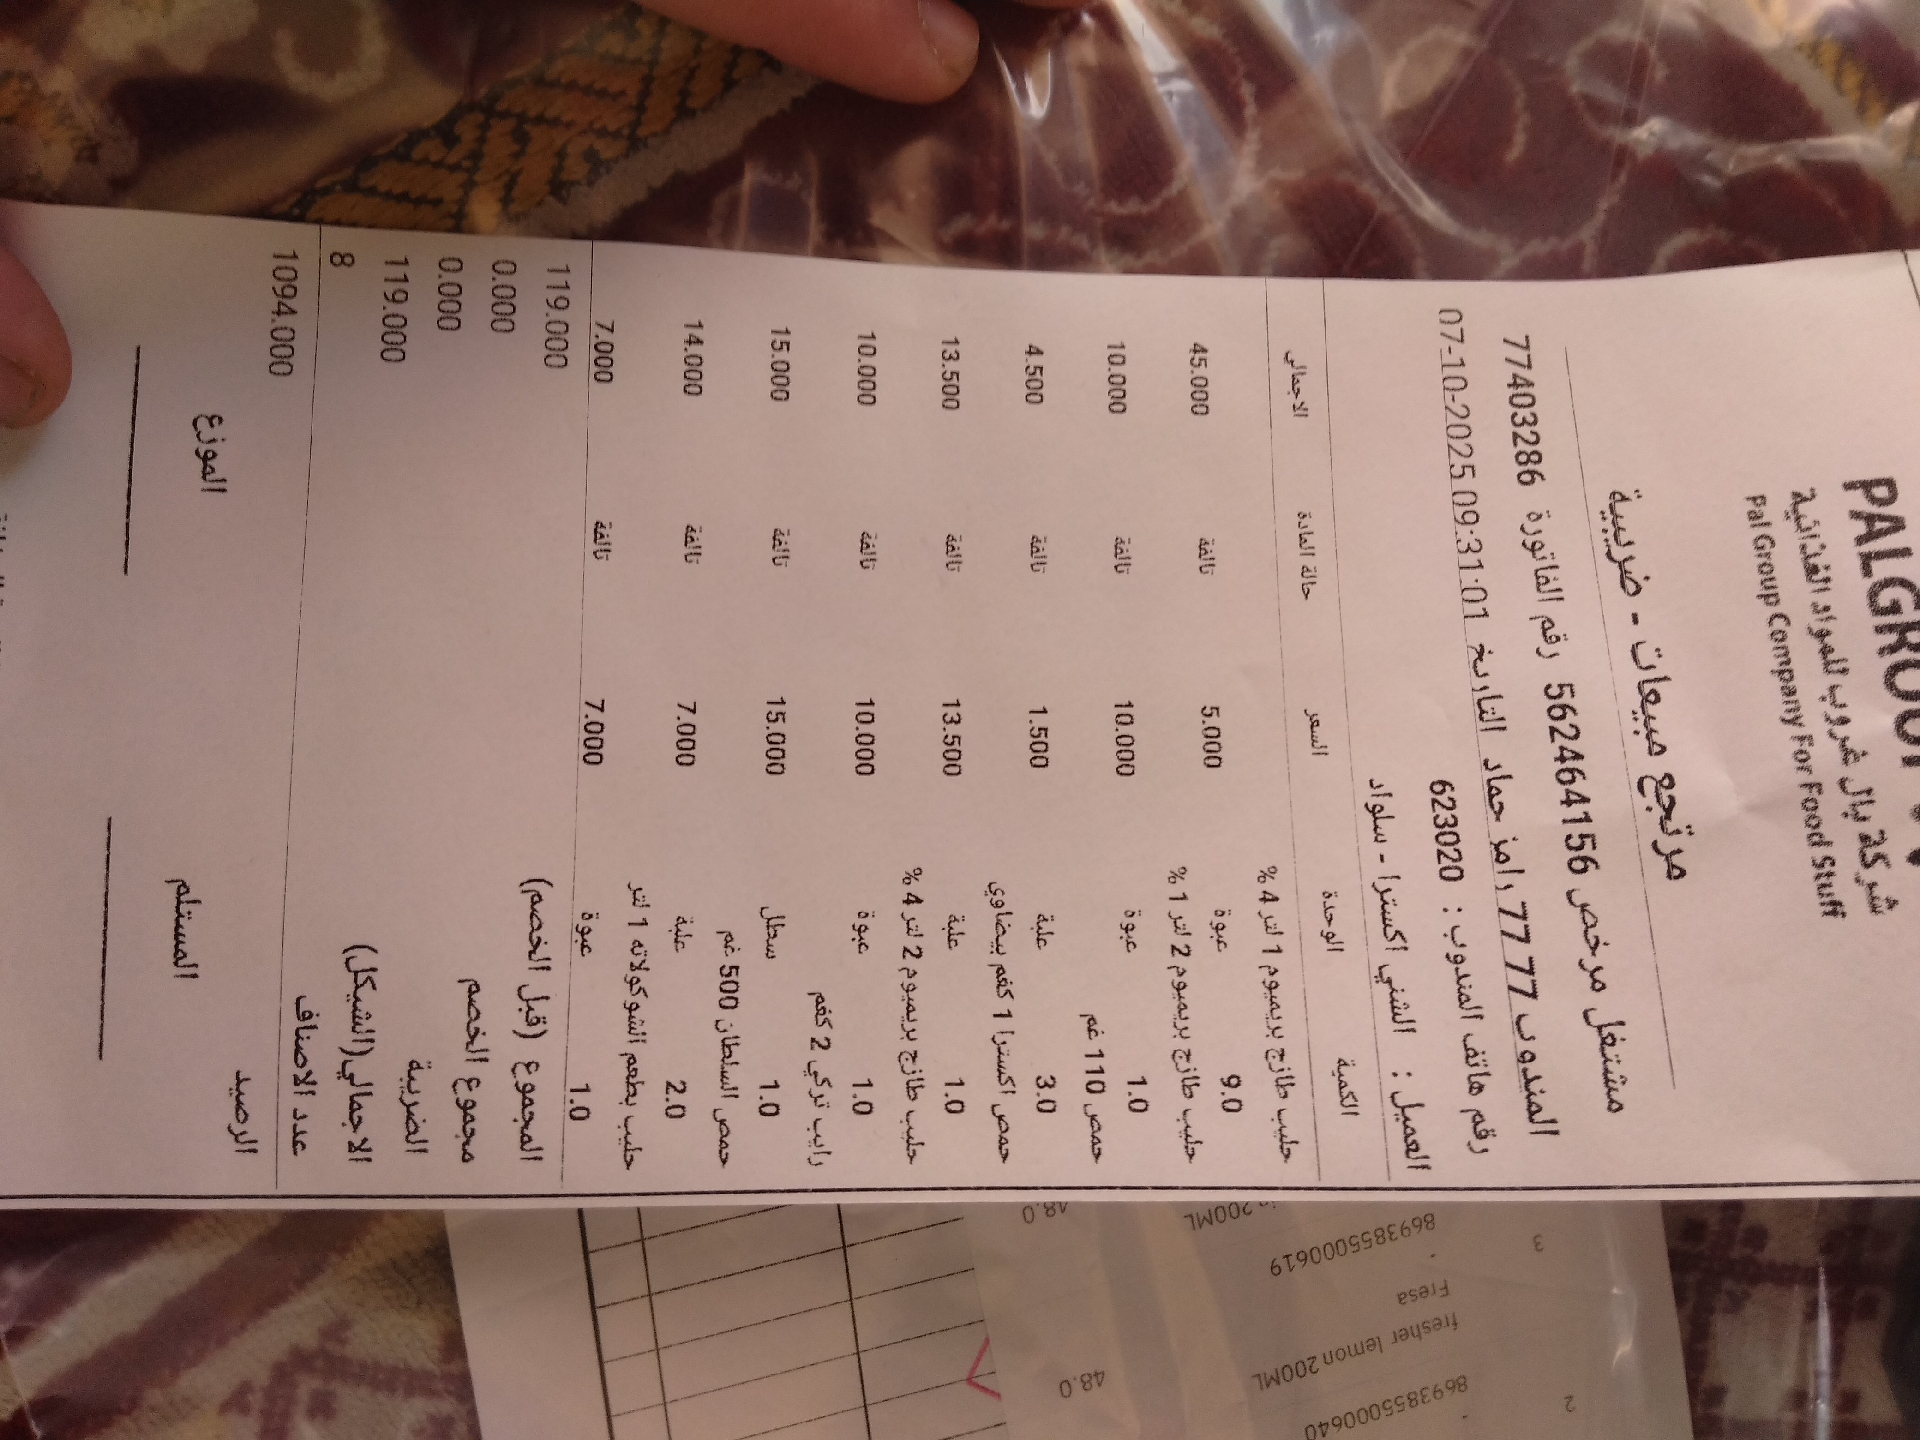 PALGROUP
شركة بال غروب للمواد الغذائية
Pal Group Company For Food Stuff
مرتجع مبيعات - ضريبية
مشتغل مرخص 562464156 رقم الفاتورة 77403286
المندوب 77 77 رامز حماد التاريخ 07-10-2025 09:31:01
رقم هاتف المندوب : 623020
العميل : الشني اكسترا - سلواد
الكمية الوحدة السعر حالة المادة الاجمالي
حليب طازج بريميوم 1 لتر 4 %
9.0 عبوة 5.000 تالفة 45.000
حليب طازج بريميوم 2 لتر 1 %
1.0 عبوة 10.000 تالفة 10.000
حمص 110 غم
3.0 علبة 1.500 تالفة 4.500
حمص اكسترا 1 كغم بيضاوي
1.0 علبة 13.500 تالفة 13.500
حليب طازج بريميوم 2 لتر 4 %
1.0 عبوة 10.000 تالفة 10.000
رايب تركي 2 كغم
1.0 سطل 15.000 تالفة 15.000
حمص السلطان 500 غم
2.0 علبة 7.000 تالفة 14.000
حليب بطعم الشوكولاته 1 لتر
1.0 عبوة 7.000 تالفة 7.000
المجموع (قبل الخصم) 119.000
مجموع الخصم 0.000
الضريبة 0.000
الاجمالي(الشيكل) 119.000
عدد الاصناف 8
الرصيد 1094.000
المستلم الموزع
2
8693855000640
fresher lemon 200ML
48.0
Fresa
3
8693855000619
200ML
48.0